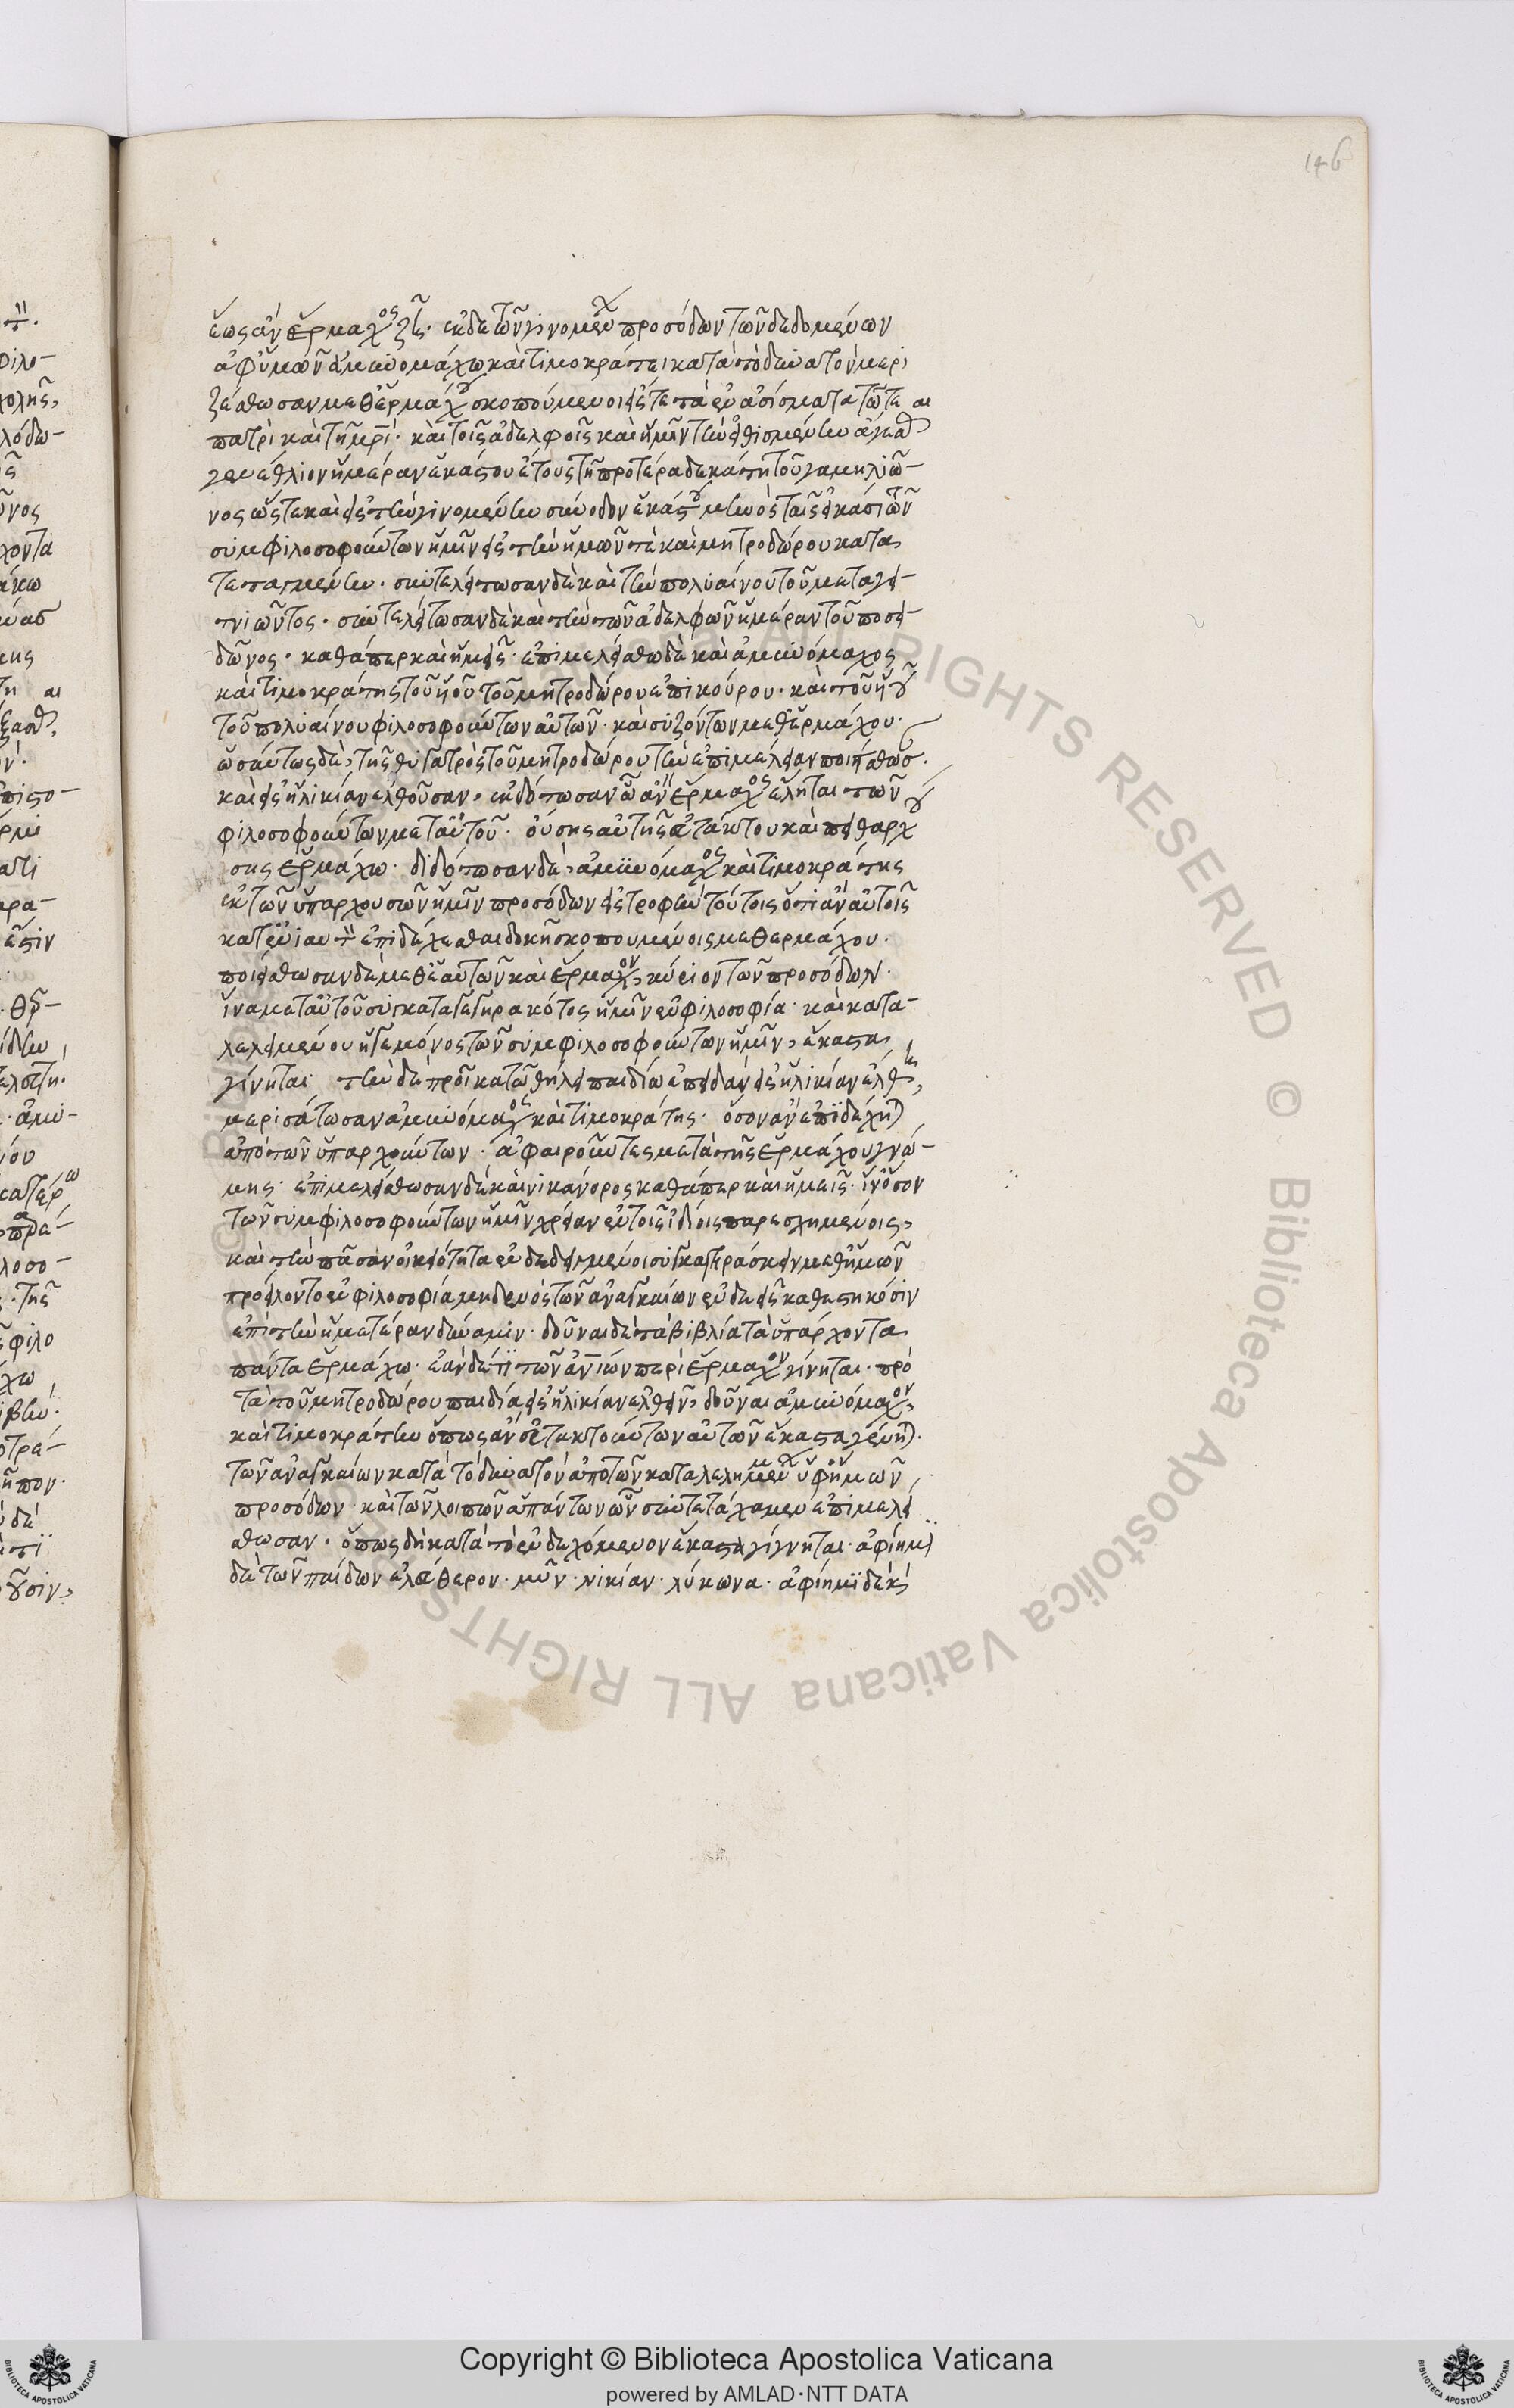 146
ἕως ἂν ἕρμαχος ζῆ. ἐκ δὲ τῶν γινομένων προσόδων τῶν δεδομένων
ἀφ' ὑμῶν ἀμυνομάχω καὶ τιμοκράτει κατὰ τὸ δυνατὸν μερι
ζέσθωσαν μεθ' ἑρμάχου σκοπούμενοι εἴς τε τὰ ἐναγίσματα τῶ τε
πατρὶ καὶ τῆ μρὶ. καὶ τοῖς ἀδελφοῖς καὶ ἡμῖν τὴν εἰθισμένην ἄγεσθαι
γενέθλιον ἡμέραν ἑκάστου ἔτους τῆ προτέρα δεκάτη τοῦ γαμηλιῶ-
νος ὥστε καὶ εἰς τὴν γινομένην σύνοδον ἑκάστου μηνὸς ταῖς εἰκάσι τῶν
συμφιλοσοφούντων ἡμῖν εἰς τὴν ἡμῶν τὲ καὶ μητροδώρου κατα
τεταγμένην. συντελείτωσαν δὲ καὶ τὴν πολυαίνου τοῦ μεταγει-
τνιῶντος. συντελείτωσαν δὲ καὶ τὴν τῶν ἀδελφῶν ἡμέραν τοῦ ποσει-
δῶνος. καθάπερ καὶ ἡμεῖς. ἐπιμελείσθω δὲ καὶ ἀμυνόμαχος
καὶ τιμοκράτης τοῦ υἱοῦ τοῦ μητροδώρου ἐπικούρου. καὶ τοῦ υἱοῦ
τοῦ πολυαίνου φιλοσοφούντων αὐτῶν. καὶ συζόντων μεθ' ἑρμάχου.
ὡσαύτως δὲ, τῆς θυγατρὸς τοῦ μητροδώρου τὴν ἐπιμέλειαν ποιήσθωσ.
καὶ εἰς ἡλικίαν ἐλθοῦσαν. ἐκδότωσαν ᾧ ἂν ἕρμαχος ἕληται τῶν
φιλοσοφούντων μετ' αὐτοῦ. οὔσης αὐτῆς εὐτάκτου καὶ πειθαρχού
σης ἑρμάχω. διδότωσαν δὲ, ἀμυνόμαχος καὶ τιμοκράτης
ἐκ τῶν ὑπαρχουσῶν ἡμῖν προσόδων εἰς τροφὴν τούτοις ὅτι ἂν αὐτοῖς
κατ' ἐνιαυτὸν ἐπιδέχεσθαι δοκῆ σκοπουμένοις μεθ' ἑρμάχου.
ποιείσθωσαν δὲ μεθ' ἑαυτῶν καὶ ἕρμαχον κύριον τῶν προσόδων.
ἵνα μετὰ τοῦ συγκαταγεγηρακότος ἡμῖν ἐν φιλοσοφία. καὶ κατα-
λελειμένου ἡγεμόνος τῶν συμφιλοσοφούντων ἡμῖν, ἕκαστα
γίνηται τὴν δὲ προῖκα τῶ θήλει παιδίω ἐπειδὰν εἰς ἡλικίαν ἔλθη,
μερισάτωσαν ἀμυνόμαχος καὶ τιμοκράτης. ὅσον ἂν ἐπιδέχηται
ἀπὸ τῶν ὑπαρχόντων. ἀφαιροῦντες μετὰ τῆς ἑρμάχου γνώ-
μης. ἐπιμελείσθωσαν δὲ καὶ νικάνορος καθάπερ καὶ ἡμεῖς. ἵν' ὅσον
τῶν συμφιλοσοφούντων ἡμῖν χρείαν ἐν τοῖς ἰδίοις παρεσχημένοις,
καὶ τὴν πᾶσαν οἰκειότητα ἐνδεδειγμένοι συγκαταγηράσκειν μεθ' ἡμῶν
προείλοντο ἐν φιλοσοφία μηδενὸς τῶν ἀναγκαίων ἐνδεεῖς καθεστήκωσιν
ἐπὶ τὴν ἡμετέραν δύναμιν. δοῦναι δὲ τὰ βιβλία τὰ ὑπάρχοντα
πάντα ἑρμάχω. ἐὰν δέ τι τῶν ἀνίων περὶ ἕρμαχον γίνηται. πρὸ
τὰ τοῦ μητροδώρου παιδία εἰς ἡλικίαν ἐλθεῖν, δοῦναι ἀμυνόμαχον,
καὶ τιμοκράτην ὅπως ἂν εὐτακτούντων αὐτῶν ἕκαστα γένηται.
τῶν ἀναγκαίων κατὰ τὸ δυνατὸν ἀπὸ τῶν καταλελημμένων ὑφ' ἡμῶν
προσόδων. καὶ τῶν λοιπῶν ἁπάντων ὧν συντετάχαμεν ἐπιμελεί
σθωσαν. ὅπως δὴ κατὰ τὸ ἐνδεχόμενον ἕκαστα γίγνηται. ἀφίημι
δὲ τῶν παίδων ἐλεύθερον. μῦν. νικίαν. λύκωνα. ἀφίημι δὲ καὶ
Copyright © Biblioteca Apostolica Vaticana
powered by AMLAD·NTT DATA